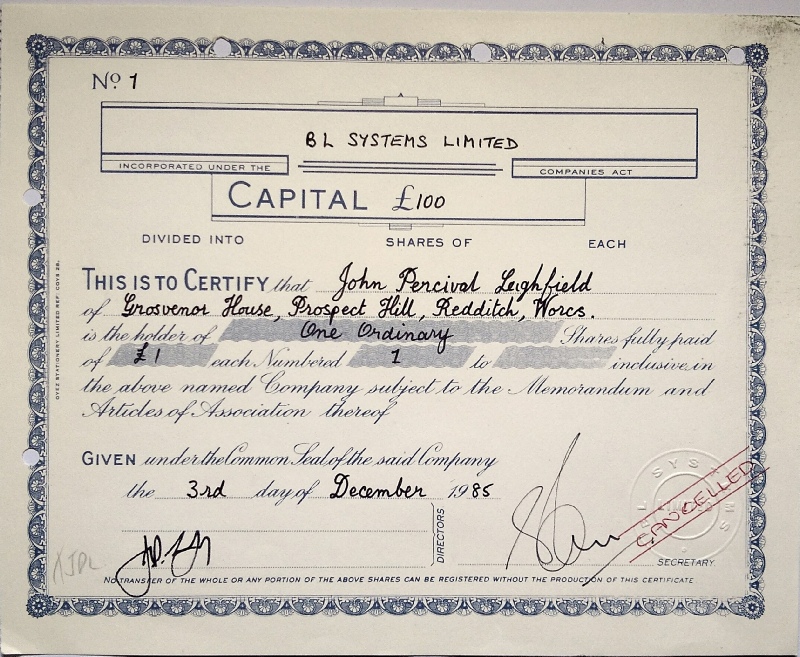 Nº 1
BL SYSTEMS LIMITED
INCORPORATED UNDER THE COMPANIES ACT
CAPITAL £100
DIVIDED INTO SHARES OF EACH
THIS IS TO CERTIFY that John Percival Leighfield
of Grosvenor House, Prospect Hill, Redditch, Worcs.
is the holder of One Ordinary Shares fully paid
of £1 each Numbered 1 to inclusive in
the above named Company subject to the Memorandum and
Articles of Association thereof
GIVEN under the Common Seal of the said Company
the 3rd day of December 1985
DIRECTORS
CANCELLED
SECRETARY.
JPL
NO TRANSFER OF THE WHOLE OR ANY PORTION OF THE ABOVE SHARES CAN BE REGISTERED WITHOUT THE PRODUCTION OF THIS CERTIFICATE.
OYEZ STATIONERY LIMITED REF. COYS 28.